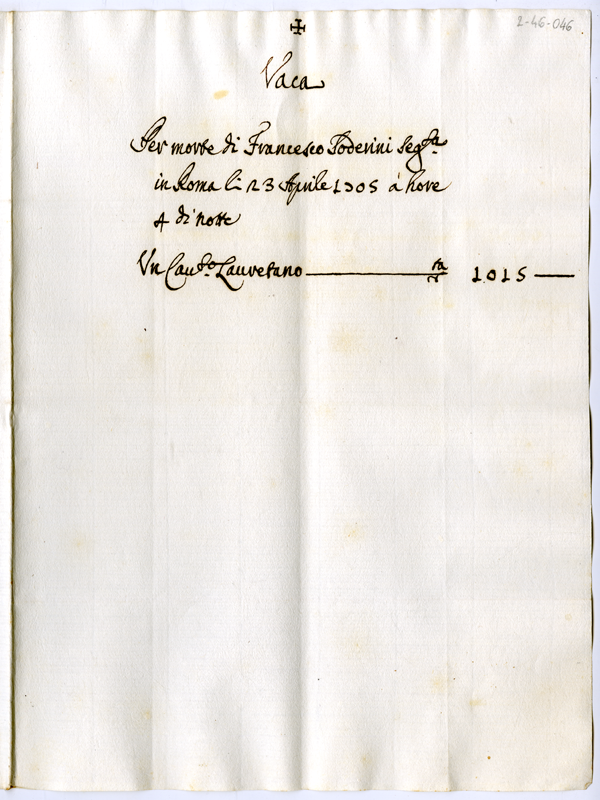 2-46-046
✠
Vaca
Per morte di Francesco Poderini seg.ta
in Roma li 23 Aprile 1705 à hore
4 di notte
Un Cau.to Lauretano ——— 1015 —